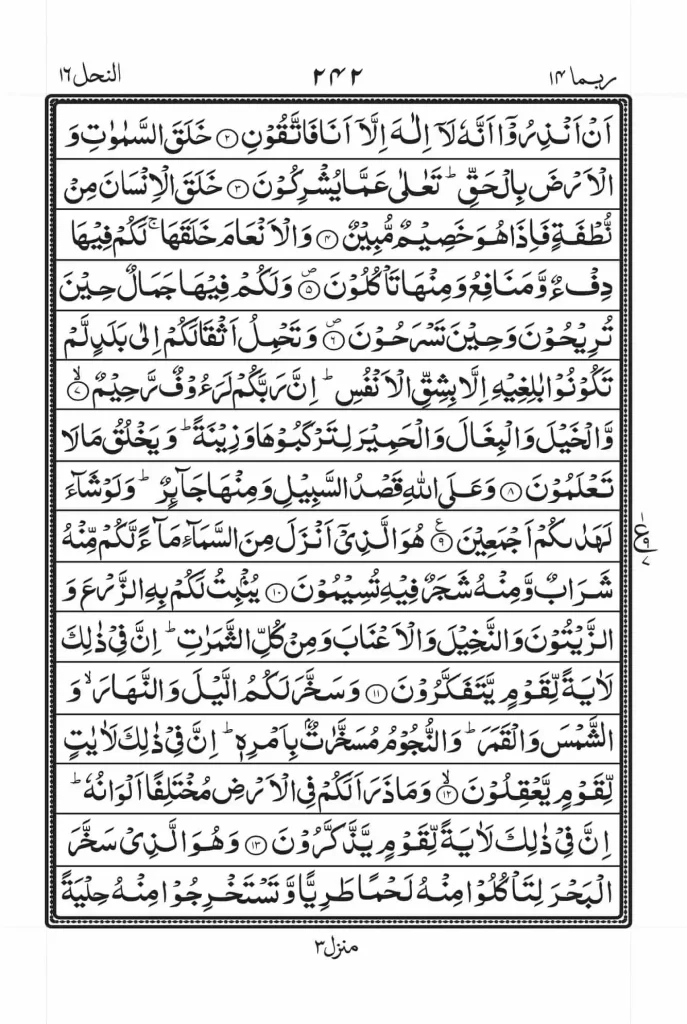 ربما ١٤ ٢٤٢ النحل ١٦
اَنْ اَنْذِرُوْۤا اَنَّهٗ لَاۤ اِلٰهَ اِلَّاۤ اَنَا فَاتَّقُوْنِ ۝٢ خَلَقَ السَّمٰوٰتِ وَ
الْاَرْضَ بِالْحَقِّ ؕ تَعٰلٰى عَمَّا يُشْرِكُوْنَ ۝٣ خَلَقَ الْاِنْسَانَ مِنْ
نُّطْفَةٍ فَاِذَا هُوَ خَصِيْمٌ مُّبِيْنٌ ۝٤ وَالْاَنْعَامَ خَلَقَهَا ۚ لَكُمْ فِيْهَا
دِفْءٌ وَّمَنَافِعُ وَمِنْهَا تَاْكُلُوْنَ ۝٥ۖ وَلَكُمْ فِيْهَا جَمَالٌ حِيْنَ
تُرِيْحُوْنَ وَحِيْنَ تَسْرَحُوْنَ ۝٦ۖ وَتَحْمِلُ اَثْقَالَكُمْ اِلٰى بَلَدٍ لَّمْ
تَكُوْنُوْا بٰلِغِيْهِ اِلَّا بِشِقِّ الْاَنْفُسِ ؕ اِنَّ رَبَّكُمْ لَرَءُوْفٌ رَّحِيْمٌ ۝٧ۙ
وَّالْخَيْلَ وَالْبِغَالَ وَالْحَمِيْرَ لِتَرْكَبُوْهَا وَزِيْنَةً ؕ وَيَخْلُقُ مَا لَا
تَعْلَمُوْنَ ۝٨ وَعَلَى اللّٰهِ قَصْدُ السَّبِيْلِ وَمِنْهَا جَآئِرٌ ؕ وَلَوْ شَآءَ
لَهَدٰىكُمْ اَجْمَعِيْنَ ۝٩ۧ هُوَ الَّذِيْۤ اَنْزَلَ مِنَ السَّمَآءِ مَآءً لَّكُمْ مِّنْهُ
ع ٩ ٧
شَرَابٌ وَّمِنْهُ شَجَرٌ فِيْهِ تُسِيْمُوْنَ ۝١٠ يُنْۢبِتُ لَكُمْ بِهِ الزَّرْعَ وَ
الزَّيْتُوْنَ وَالنَّخِيْلَ وَالْاَعْنَابَ وَمِنْ كُلِّ الثَّمَرٰتِ ؕ اِنَّ فِيْ ذٰلِكَ
لَاٰيَةً لِّقَوْمٍ يَّتَفَكَّرُوْنَ ۝١١ وَسَخَّرَ لَكُمُ الَّيْلَ وَالنَّهَارَ ۙ وَ
الشَّمْسَ وَالْقَمَرَ ؕ وَالنُّجُوْمُ مُسَخَّرٰتٌۢ بِاَمْرِهٖ ؕ اِنَّ فِيْ ذٰلِكَ لَاٰيٰتٍ
لِّقَوْمٍ يَّعْقِلُوْنَ ۝١٢ۙ وَمَا ذَرَاَ لَكُمْ فِي الْاَرْضِ مُخْتَلِفًا اَلْوَانُهٗ ؕ
اِنَّ فِيْ ذٰلِكَ لَاٰيَةً لِّقَوْمٍ يَّذَّكَّرُوْنَ ۝١٣ وَهُوَ الَّذِيْ سَخَّرَ
الْبَحْرَ لِتَاْكُلُوْا مِنْهُ لَحْمًا طَرِيًّا وَّتَسْتَخْرِجُوْا مِنْهُ حِلْيَةً
منزل ٣